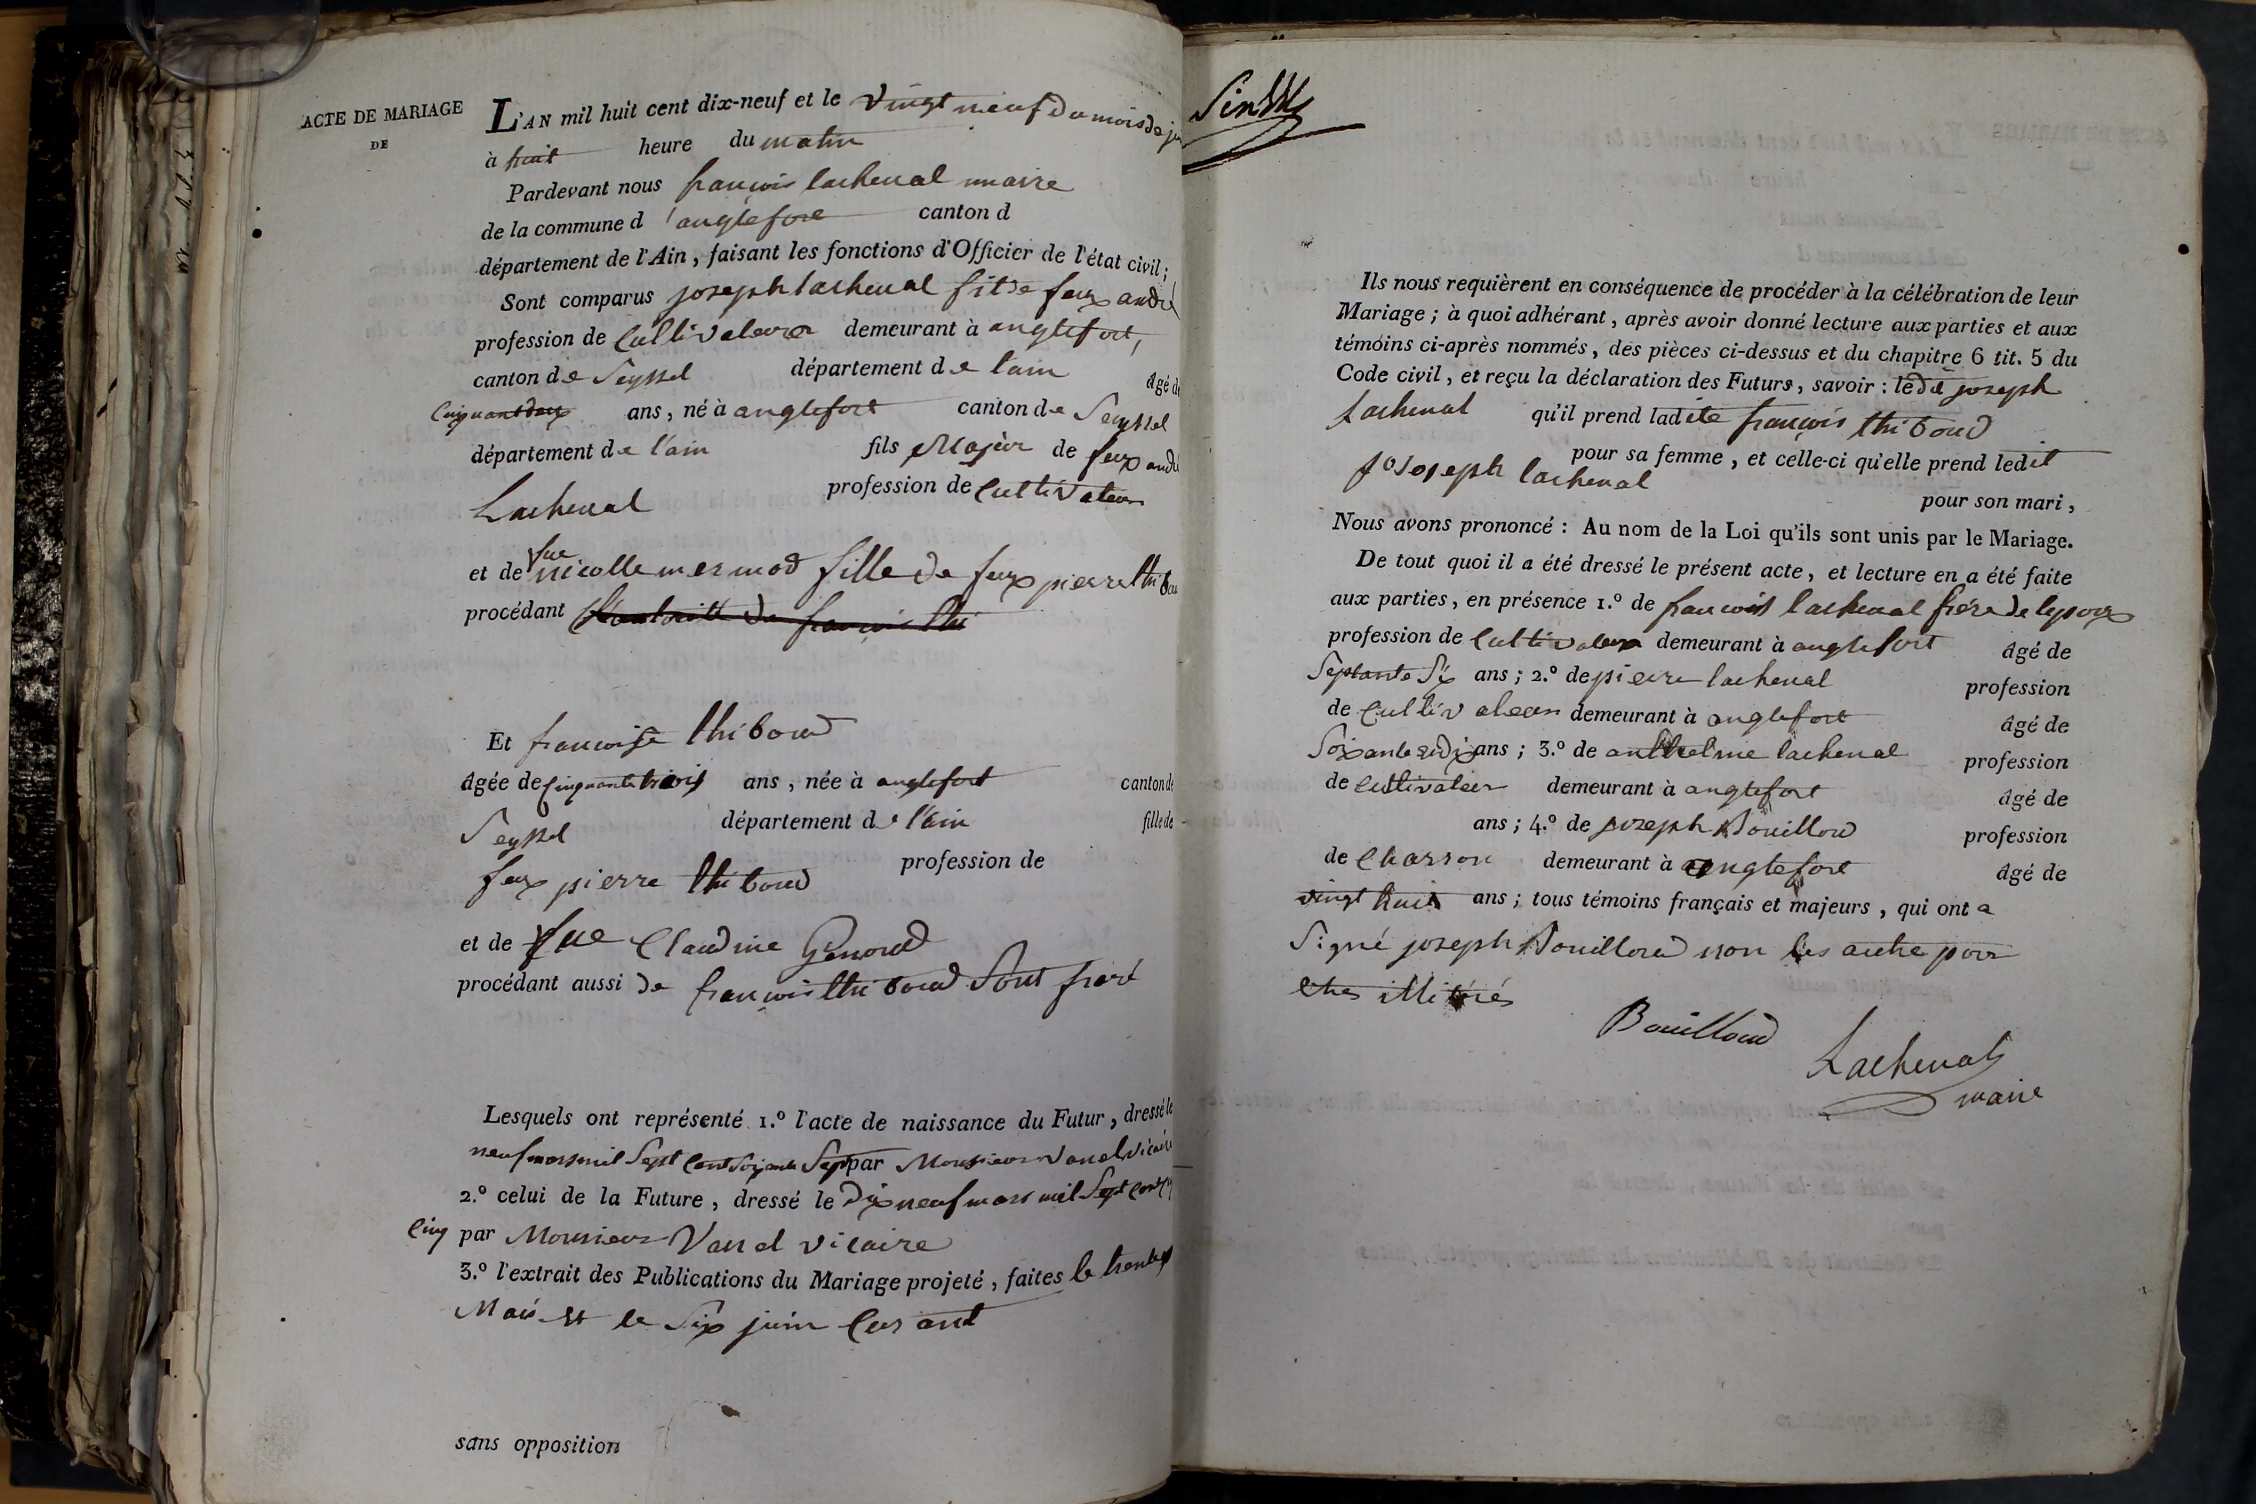 ACTE DE MARIAGE
DE
L'AN mil huit cent dix-neuf et le vingt neuf du mois de
à huit heure du matin
Pardevant nous françois lachenal maire
de la commune d'anglefort canton d
département de l'Ain, faisant les fonctions d'Officier de l'état civil;
Sont comparus joseph lachenal fit de feux andré
profession de Cultivateur demeurant à anglefort,
canton de Seyssel département de l'ain âgé de
Cinquant deux ans, né à anglefort canton de Seyssel
département de l'ain fils Majeur de feux andré
Lachenal profession de Cultivateur
et de fue nicolle mermod fille de feux pierre thiboud
procédant
Et françoise thiboud
âgée de Cinquante trois ans, née à anglefort canton de
Seyssel département de l'ain fille de
feux pierre thiboud profession de
et de fue Claudine Genoud
procédant aussi de françois thiboud Sont frere
Lesquels ont représenté 1.º l'acte de naissance du Futur, dressé le
neuf mars mil Sept Cent Soixante Sept par Monsieur Vanel vicaire
2.º celui de la Future, dressé le dix neuf mars mil Sept Cent
Cinq par Monsieur Vanel vicaire
3.º l'extrait des Publications du Mariage projeté, faites le trente
Mai et le Six juin Curant
sans opposition
Ils nous requièrent en conséquence de procéder à la célébration de leur
Mariage; à quoi adhérant, après avoir donné lecture aux parties et aux
témoins ci-après nommés, des pièces ci-dessus et du chapitre 6 tit. 5 du
Code civil, et reçu la déclaration des Futurs, savoir: ledit joseph
Lachenal qu'il prend ladite françois thiboud
pour sa femme, et celle-ci qu'elle prend ledit
joseph lachenal pour son mari,
Nous avons prononcé: Au nom de la Loi qu'ils sont unis par le Mariage.
De tout quoi il a été dressé le présent acte, et lecture en a été faite
aux parties, en présence 1.º de françois lachenal frére de lepoux
profession de Cultivateur demeurant à anglefort âgé de
Septante Six ans; 2.º de pierre lachenal profession
de Cultivateur demeurant à anglefort âgé de
Soixante ans; 3.º de anthelme lachenal profession
de Cultivateur demeurant à anglefort âgé de
ans; 4.º de joseph Bouilloud profession
de Charron demeurant à anglefort âgé de
vingt huit ans; tous témoins français et majeurs, qui ont a
Signé joseph Bouilloud non les autre pour
etres illitérés
Bouilloud
Lachenal
maire